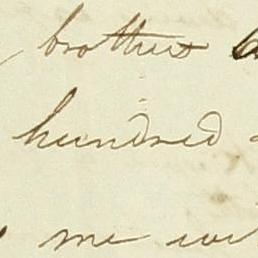 brothers
hundred
me